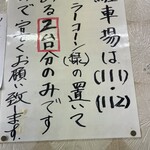 駐車場は(111)
・112)
ラーコーン(緑)の置いて
る2台分のみです
で宜しくお願い致します